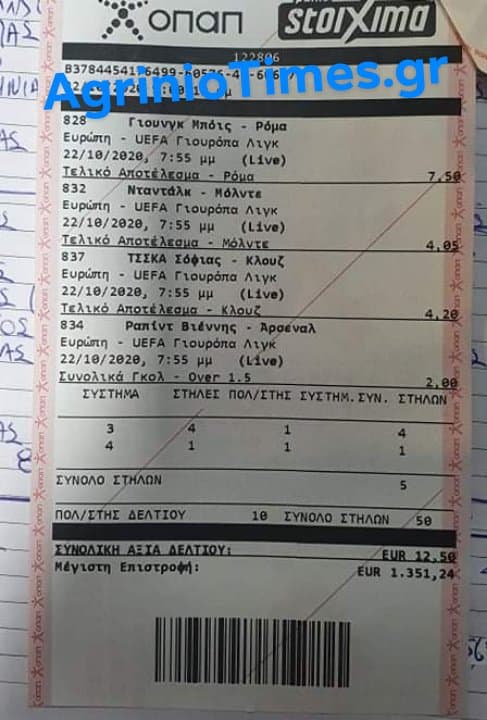 οπαπ
stoixima
122806
AgrinioTimes.gr
828 Γιουνγκ Μπόις - Ρόμα
Ευρώπη - UEFA Γιουρόπα Λιγκ
22/10/2020, 7:55 μμ (Live)
Τελικό Αποτέλεσμα - Ρόμα 7,50
832 Νταντάλκ - Μόλντε
Ευρώπη - UEFA Γιουρόπα Λιγκ
22/10/2020, 7:55 μμ (Live)
Τελικό Αποτέλεσμα - Μόλντε 4,05
837 ΤΣΣΚΑ Σόφιας - Κλουζ
Ευρώπη - UEFA Γιουρόπα Λιγκ
22/10/2020, 7:55 μμ (Live)
Τελικό Αποτέλεσμα - Κλουζ 4,20
834 Ραπίντ Βιέννης - Άρσεναλ
Ευρώπη - UEFA Γιουρόπα Λιγκ
22/10/2020, 7:55 μμ (Live)
Συνολικά Γκολ - Over 1.5 2,00
ΣΥΣΤΗΜΑ ΣΤΗΛΕΣ ΠΟΛ/ΣΤΗΣ ΣΥΣΤΗΜ. ΣΥΝ. ΣΤΗΛΩΝ
3 4 1 4
4 1 1 1
ΣΥΝΟΛΟ ΣΤΗΛΩΝ 5
ΠΟΛ/ΣΤΗΣ ΔΕΛΤΙΟΥ 10 ΣΥΝΟΛΟ ΣΤΗΛΩΝ 50
ΣΥΝΟΛΙΚΗ ΑΞΙΑ ΔΕΛΤΙΟΥ: EUR 12,50
Μέγιστη Επιστροφή: EUR 1.351,24